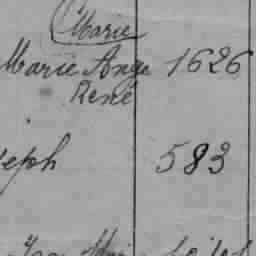 Marie
Marie Ange 1626
René
seph 583